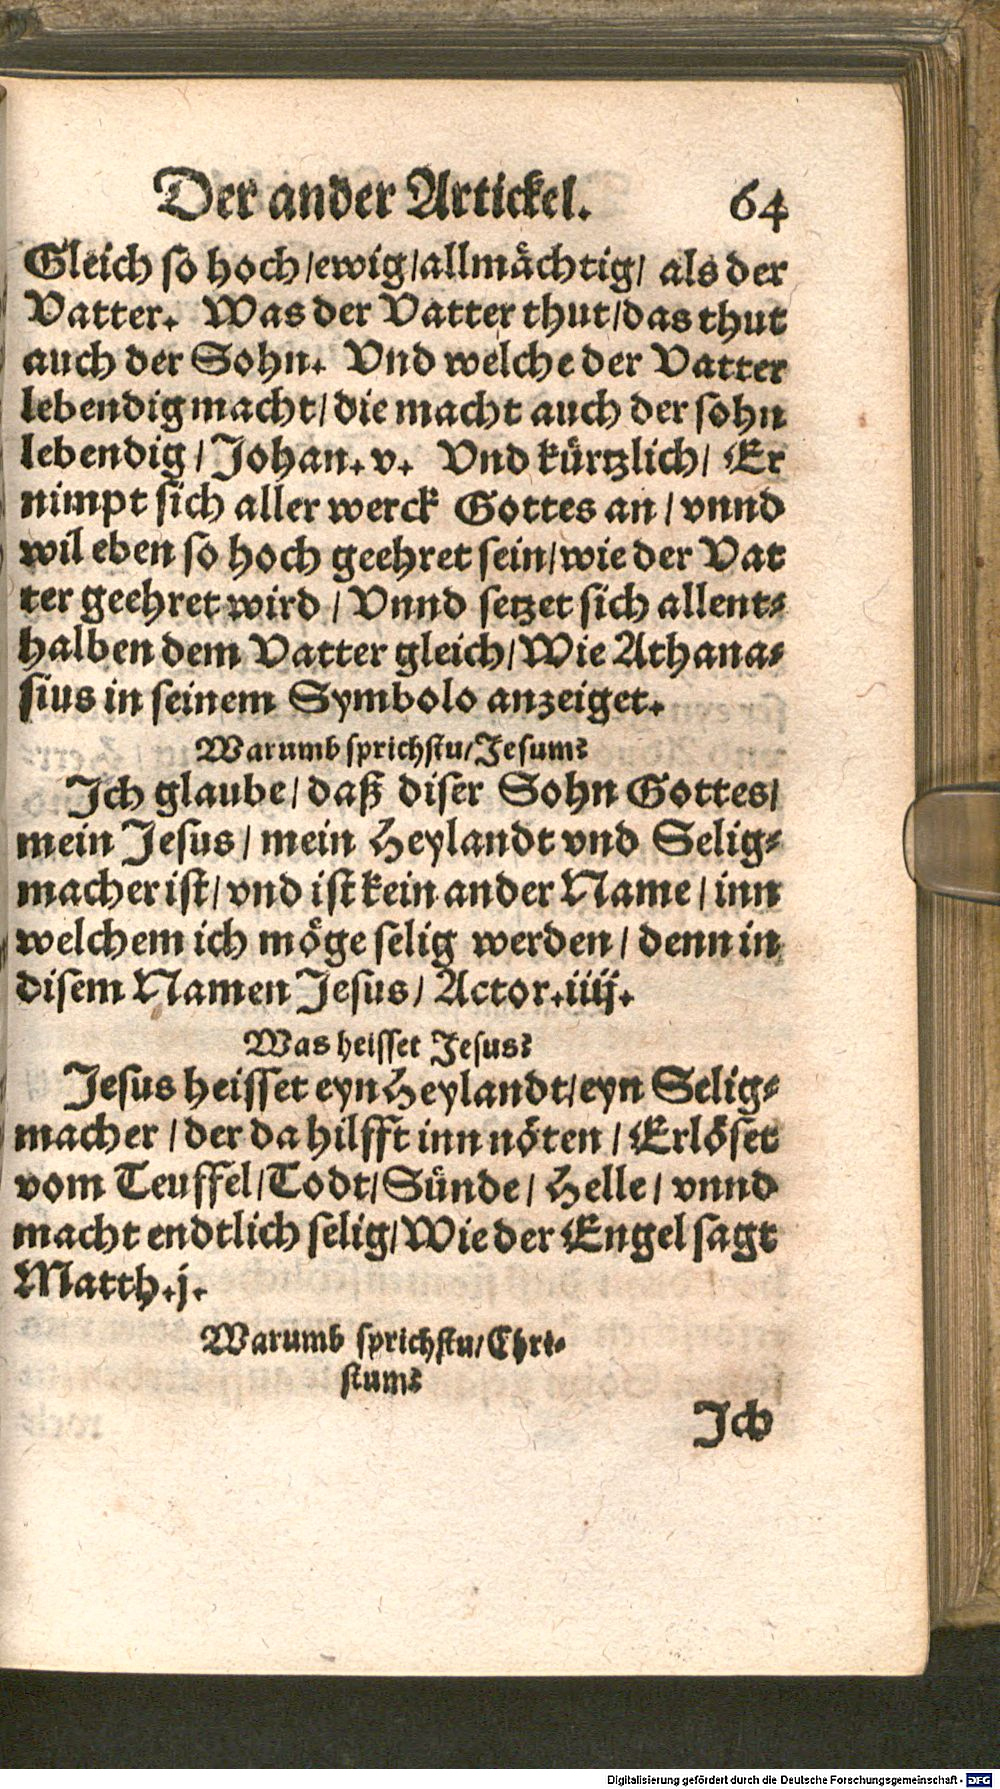 Der ander Artickel. 64
Gleich so hoch/ewig/allmächtig/ als der
Vatter. Was der Vatter thut/das thut
auch der Sohn. Vnd welche der Vatter
lebendig macht/die macht auch der sohn
lebendig/Johan.v. Vnd kürtzlich/ Er
nimpt sich aller werck Gottes an/vnnd
wil eben so hoch geehret sein/wie der Vat
ter geehret wird/Vnnd setzet sich allent-
halben dem Vatter gleich/Wie Athana-
sius in seinem Symbolo anzeiget.
Warumb sprichstu/Jesum?
Ich glaube/daß diser Sohn Gottes/
mein Jesus/mein Heylandt vnd Selig-
macher ist/vnd ist kein ander Name/inn
welchem ich möge selig werden/denn in
disem Namen Jesus/ Actor.iiij.
Was heisset Jesus?
Jesus heisset eyn Heylandt/eyn Selig-
macher/der da hilfft inn nöten/Erlöset
vom Teuffel/Todt/Sünde/Helle/vnnd
macht endtlich selig/Wie der Engel sagt
Matth.j.
Warumb sprichstu/Chri-
stum?
Ich
Digitalisierung gefördert durch die Deutsche Forschungsgemeinschaft - DFG